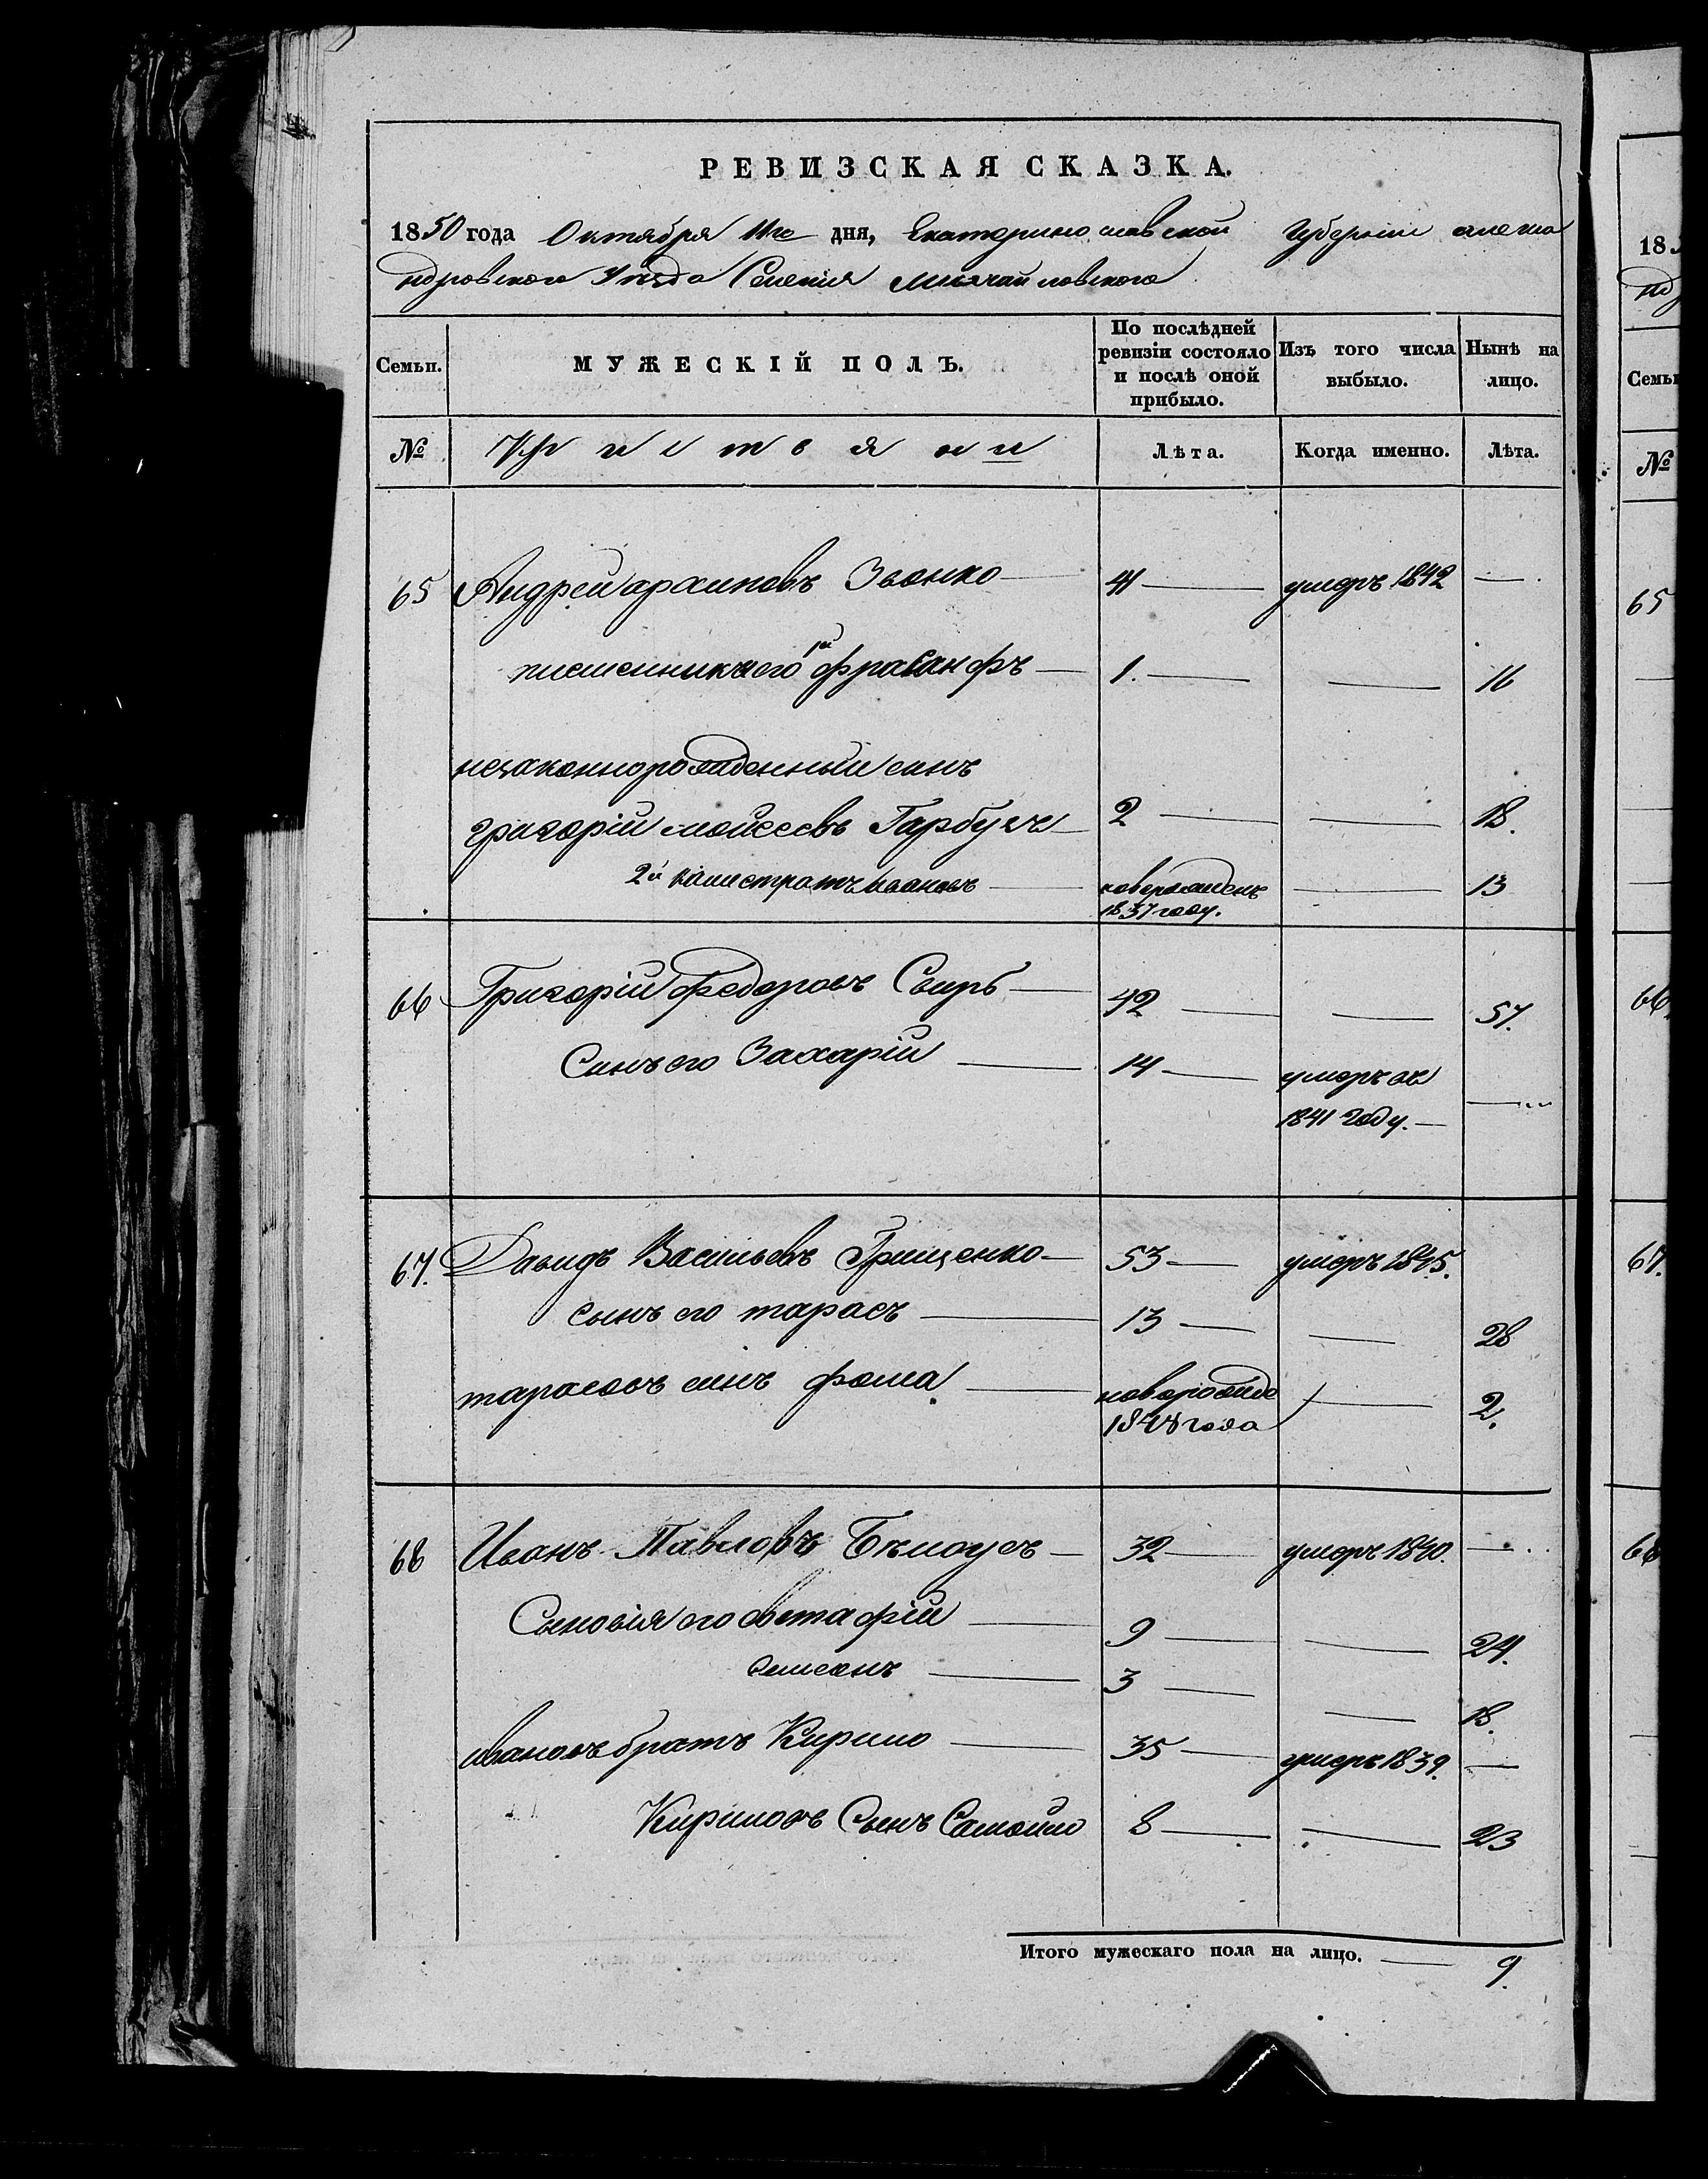 РЕВИЗСКАЯ СКАЗКА.
1850 года Октября 11го дня, Екатеринославской Губерніи алекса
ндровского Уезда Селенія Михайловского
Семьи. МУЖЕСКІЙ ПОЛЪ. По послѣдней ревизіи состояло и послѣ оной прибыло. Изъ того числа выбыло. Нынѣ на лицо.
№ Крестьяни Лѣта. Когда именно. Лѣта.
65 Андрей архиповъ Звонко — 41 — умеръ 1842 —
племенникъ его 1й — 1. — — 16
незаконнорожденный синъ
григорій мойсеевъ Гарбузъ — 2 — — 18.
2й калистратъ ивановъ — новорожденъ 1837 году. — 13
66 Григорій Федоровъ Сыръ — 42 — — 57.
Синъ его Захарій — 14 — умеръ въ —
1841 году. —
67. Давидъ Васильевъ Грищенко — 53 — умеръ 1845.
сынъ его тарасъ — 13 — — 28
тарасовъ синъ фома — новорожде — 2.
1848 года
68 Иванъ Павловъ Бѣлоусъ — 32 — умеръ 1840. —
Сыновія его овстафій — 9 — — 24.
семенъ — 3 — — 18.
ивановъ братъ Кирило — 35 — умеръ 1839. —
Кириловъ Сынъ Самойло 8 — — 23
Итого мужескаго пола на лицо. — 9.
18
Семьи
№
65
66
67.
68